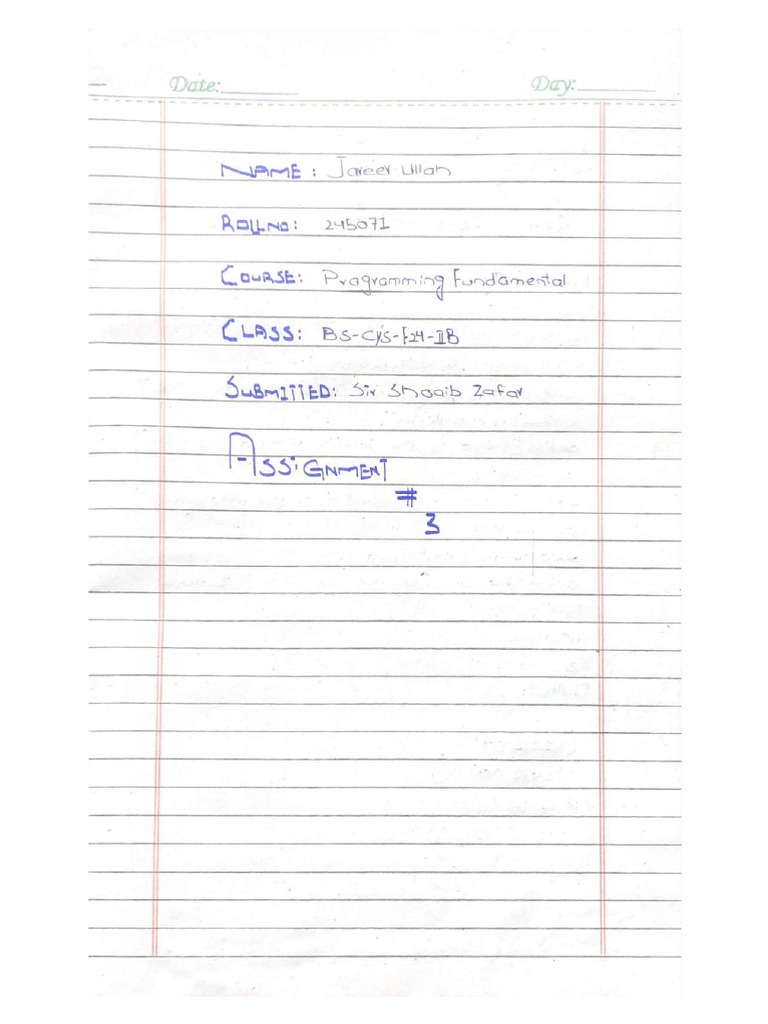 Date:________ Day:________
NAME: Jareer Ullah
ROLLNO: 245071
COURSE: Programming Fundamental
CLASS: BS-CYS-F24-IIB
SUBMITTED: Sir Shoaib Zafar
ASSIGNMENT
#
3